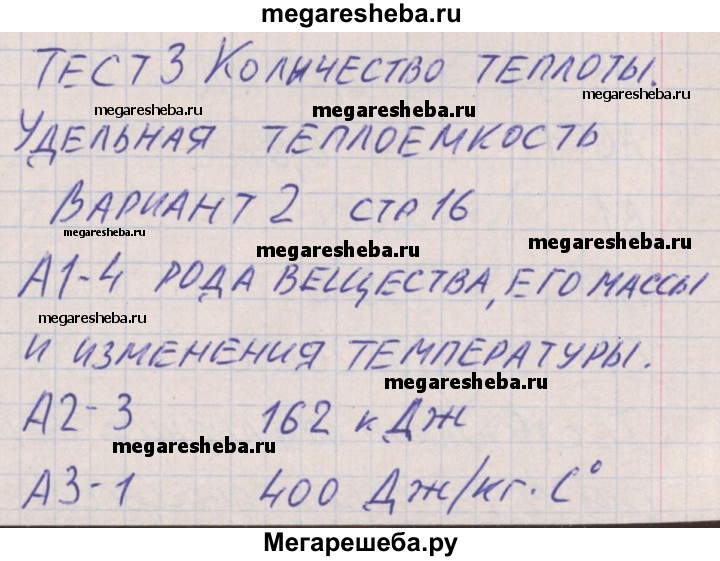 megaresheba.ru
ТЕСТ 3 КОЛИЧЕСТВО ТЕПЛОТЫ.
megaresheba.ru
megaresheba.ru
megaresheba.ru
УДЕЛЬНАЯ ТЕПЛОЕМКОСТЬ
ВАРИАНТ 2 СТР 16
megaresheba.ru
megaresheba.ru
megaresheba.ru
А1-4 РОДА ВЕЩЕСТВА, ЕГО МАССЫ
megaresheba.ru
И ИЗМЕНЕНИЯ ТЕМПЕРАТУРЫ.
megaresheba.ru
А2-3 162 кДж
megaresheba.ru
А3-1 400 Дж/кг·С°
Мегарешеба.ру